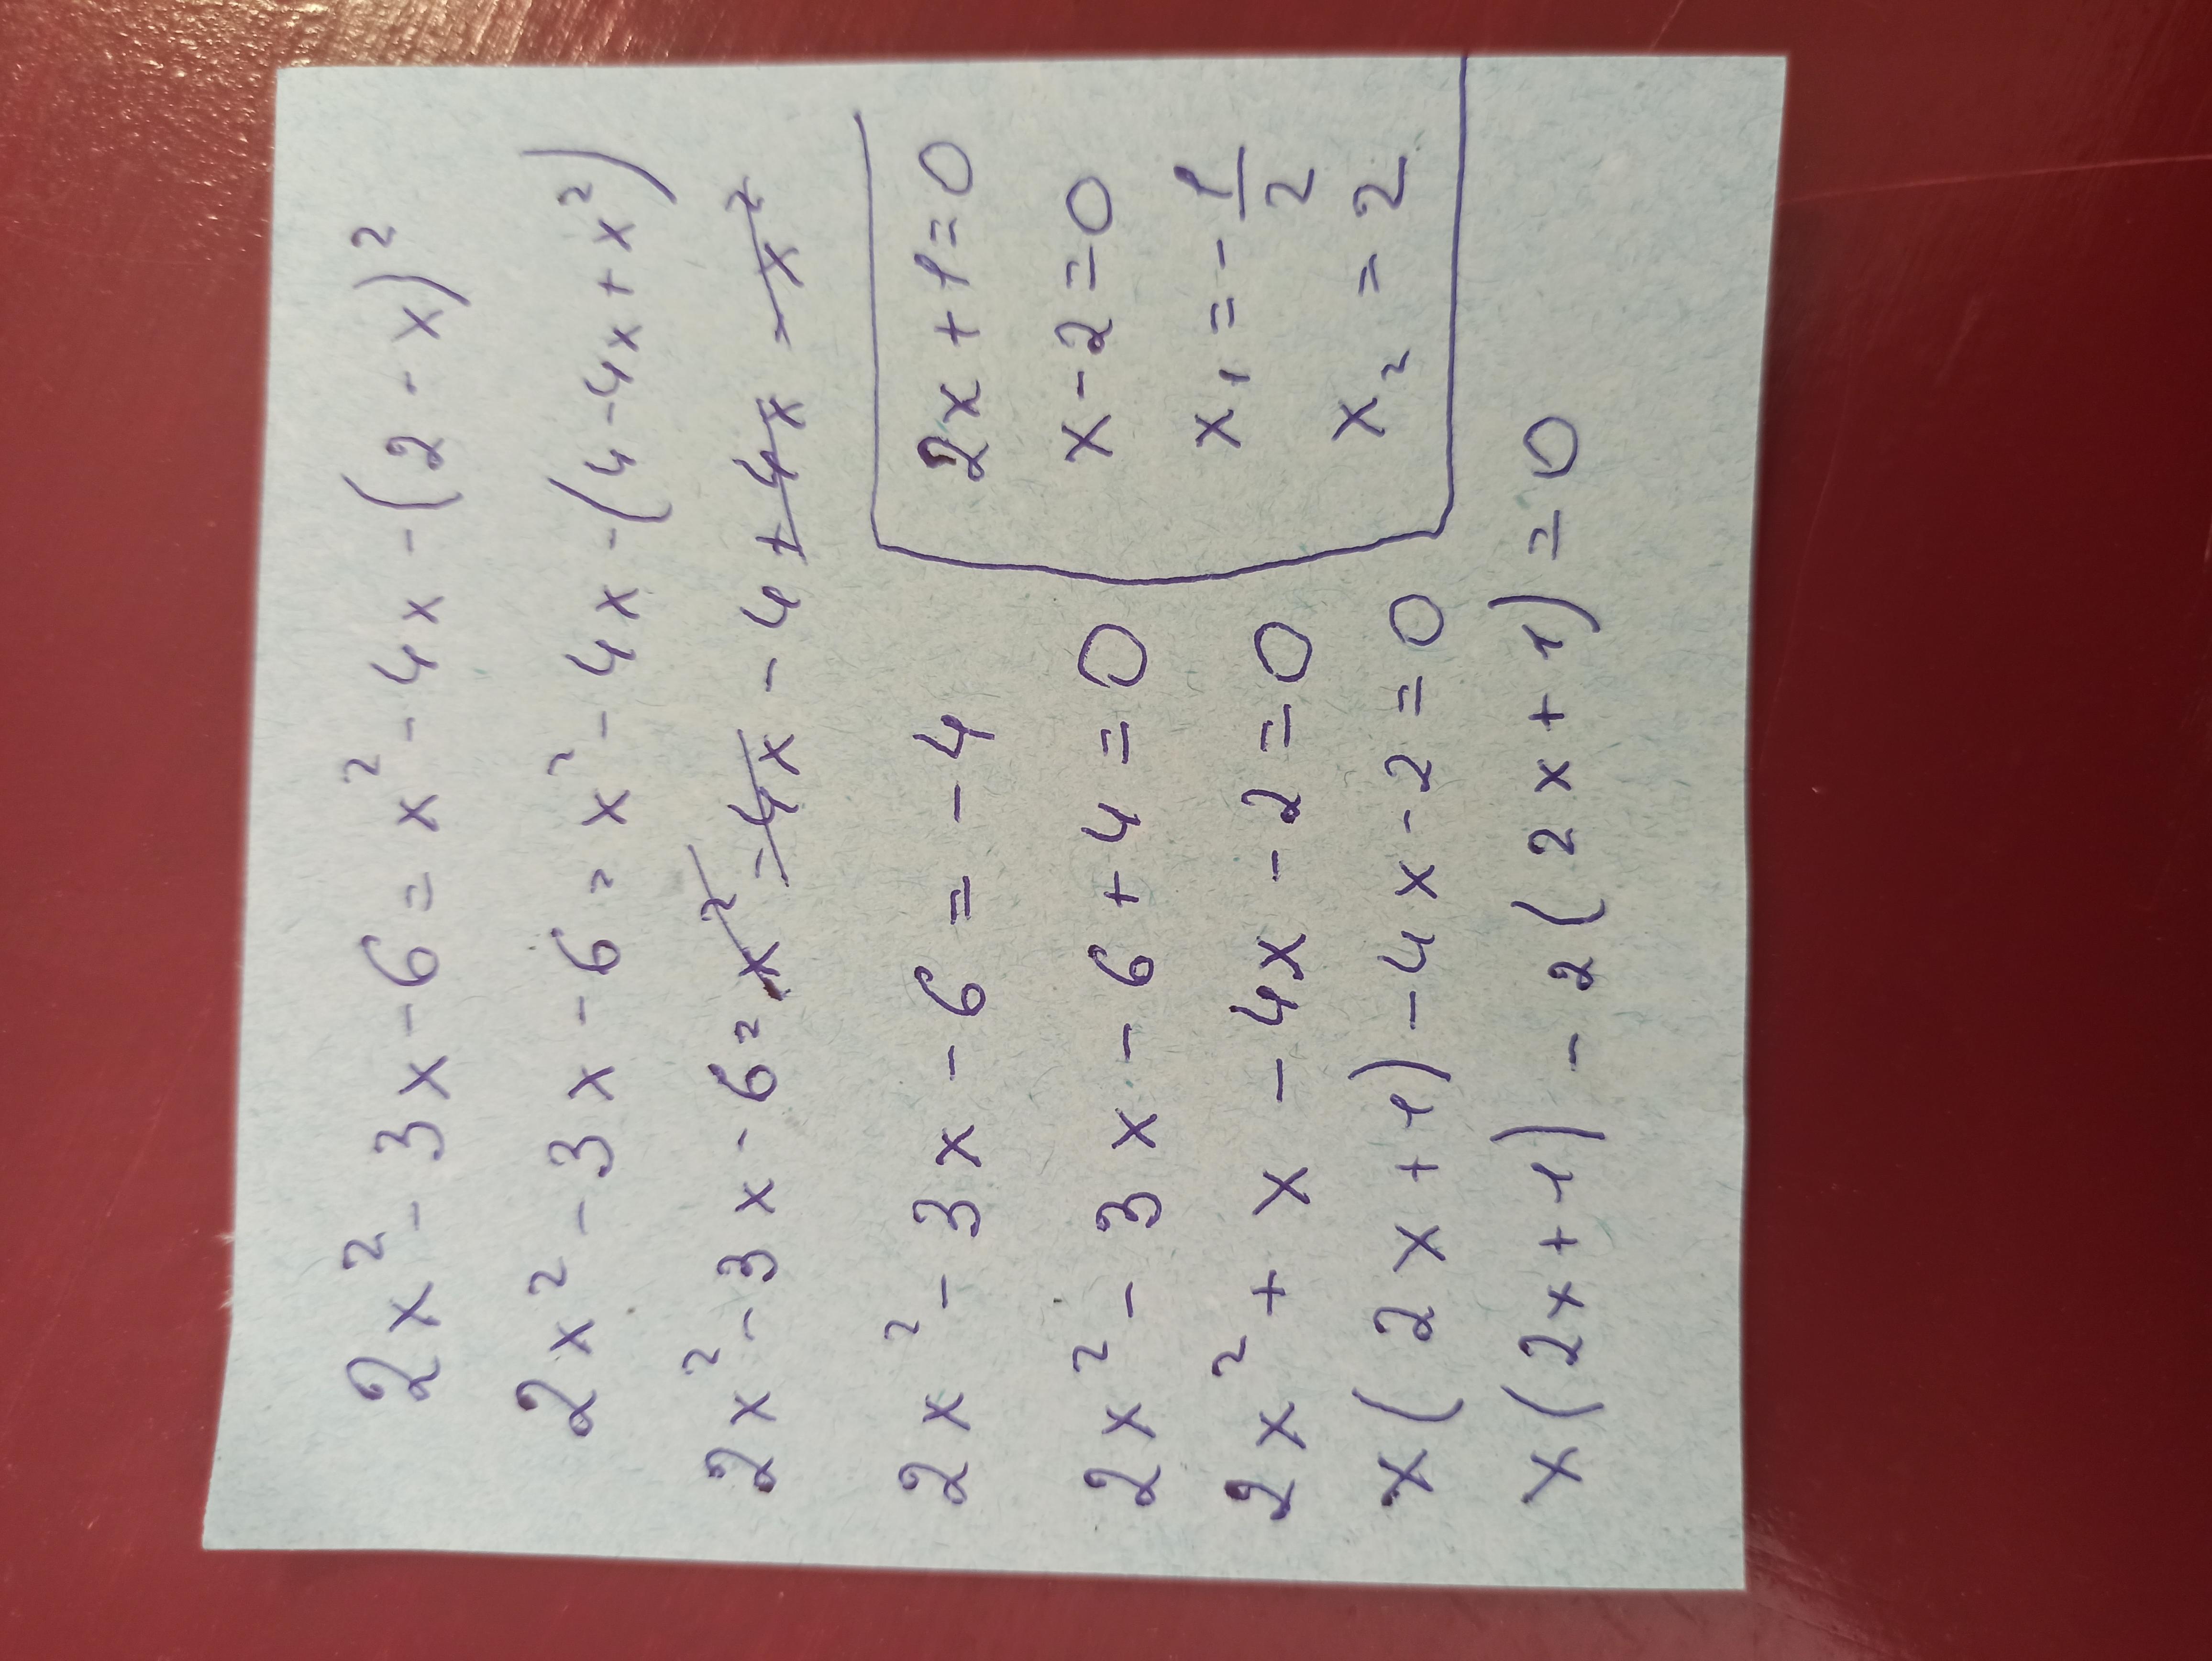 2x² - 3x - 6 = x² - 4x - (2 - x)²
2x² - 3x - 6 = x² - 4x - (4 - 4x + x²)
2x² - 3x - 6 = x² - 4x - 4 + 4x - x²
2x² - 3x - 6 = -4
2x² - 3x - 6 + 4 = 0
2x² + x - 4x - 2 = 0
x(2x + 1) - 4x - 2 = 0
x(2x + 1) - 2(2x + 1) = 0
2x + 1 = 0
x - 2 = 0
x₁ = -1/2
x₂ = 2